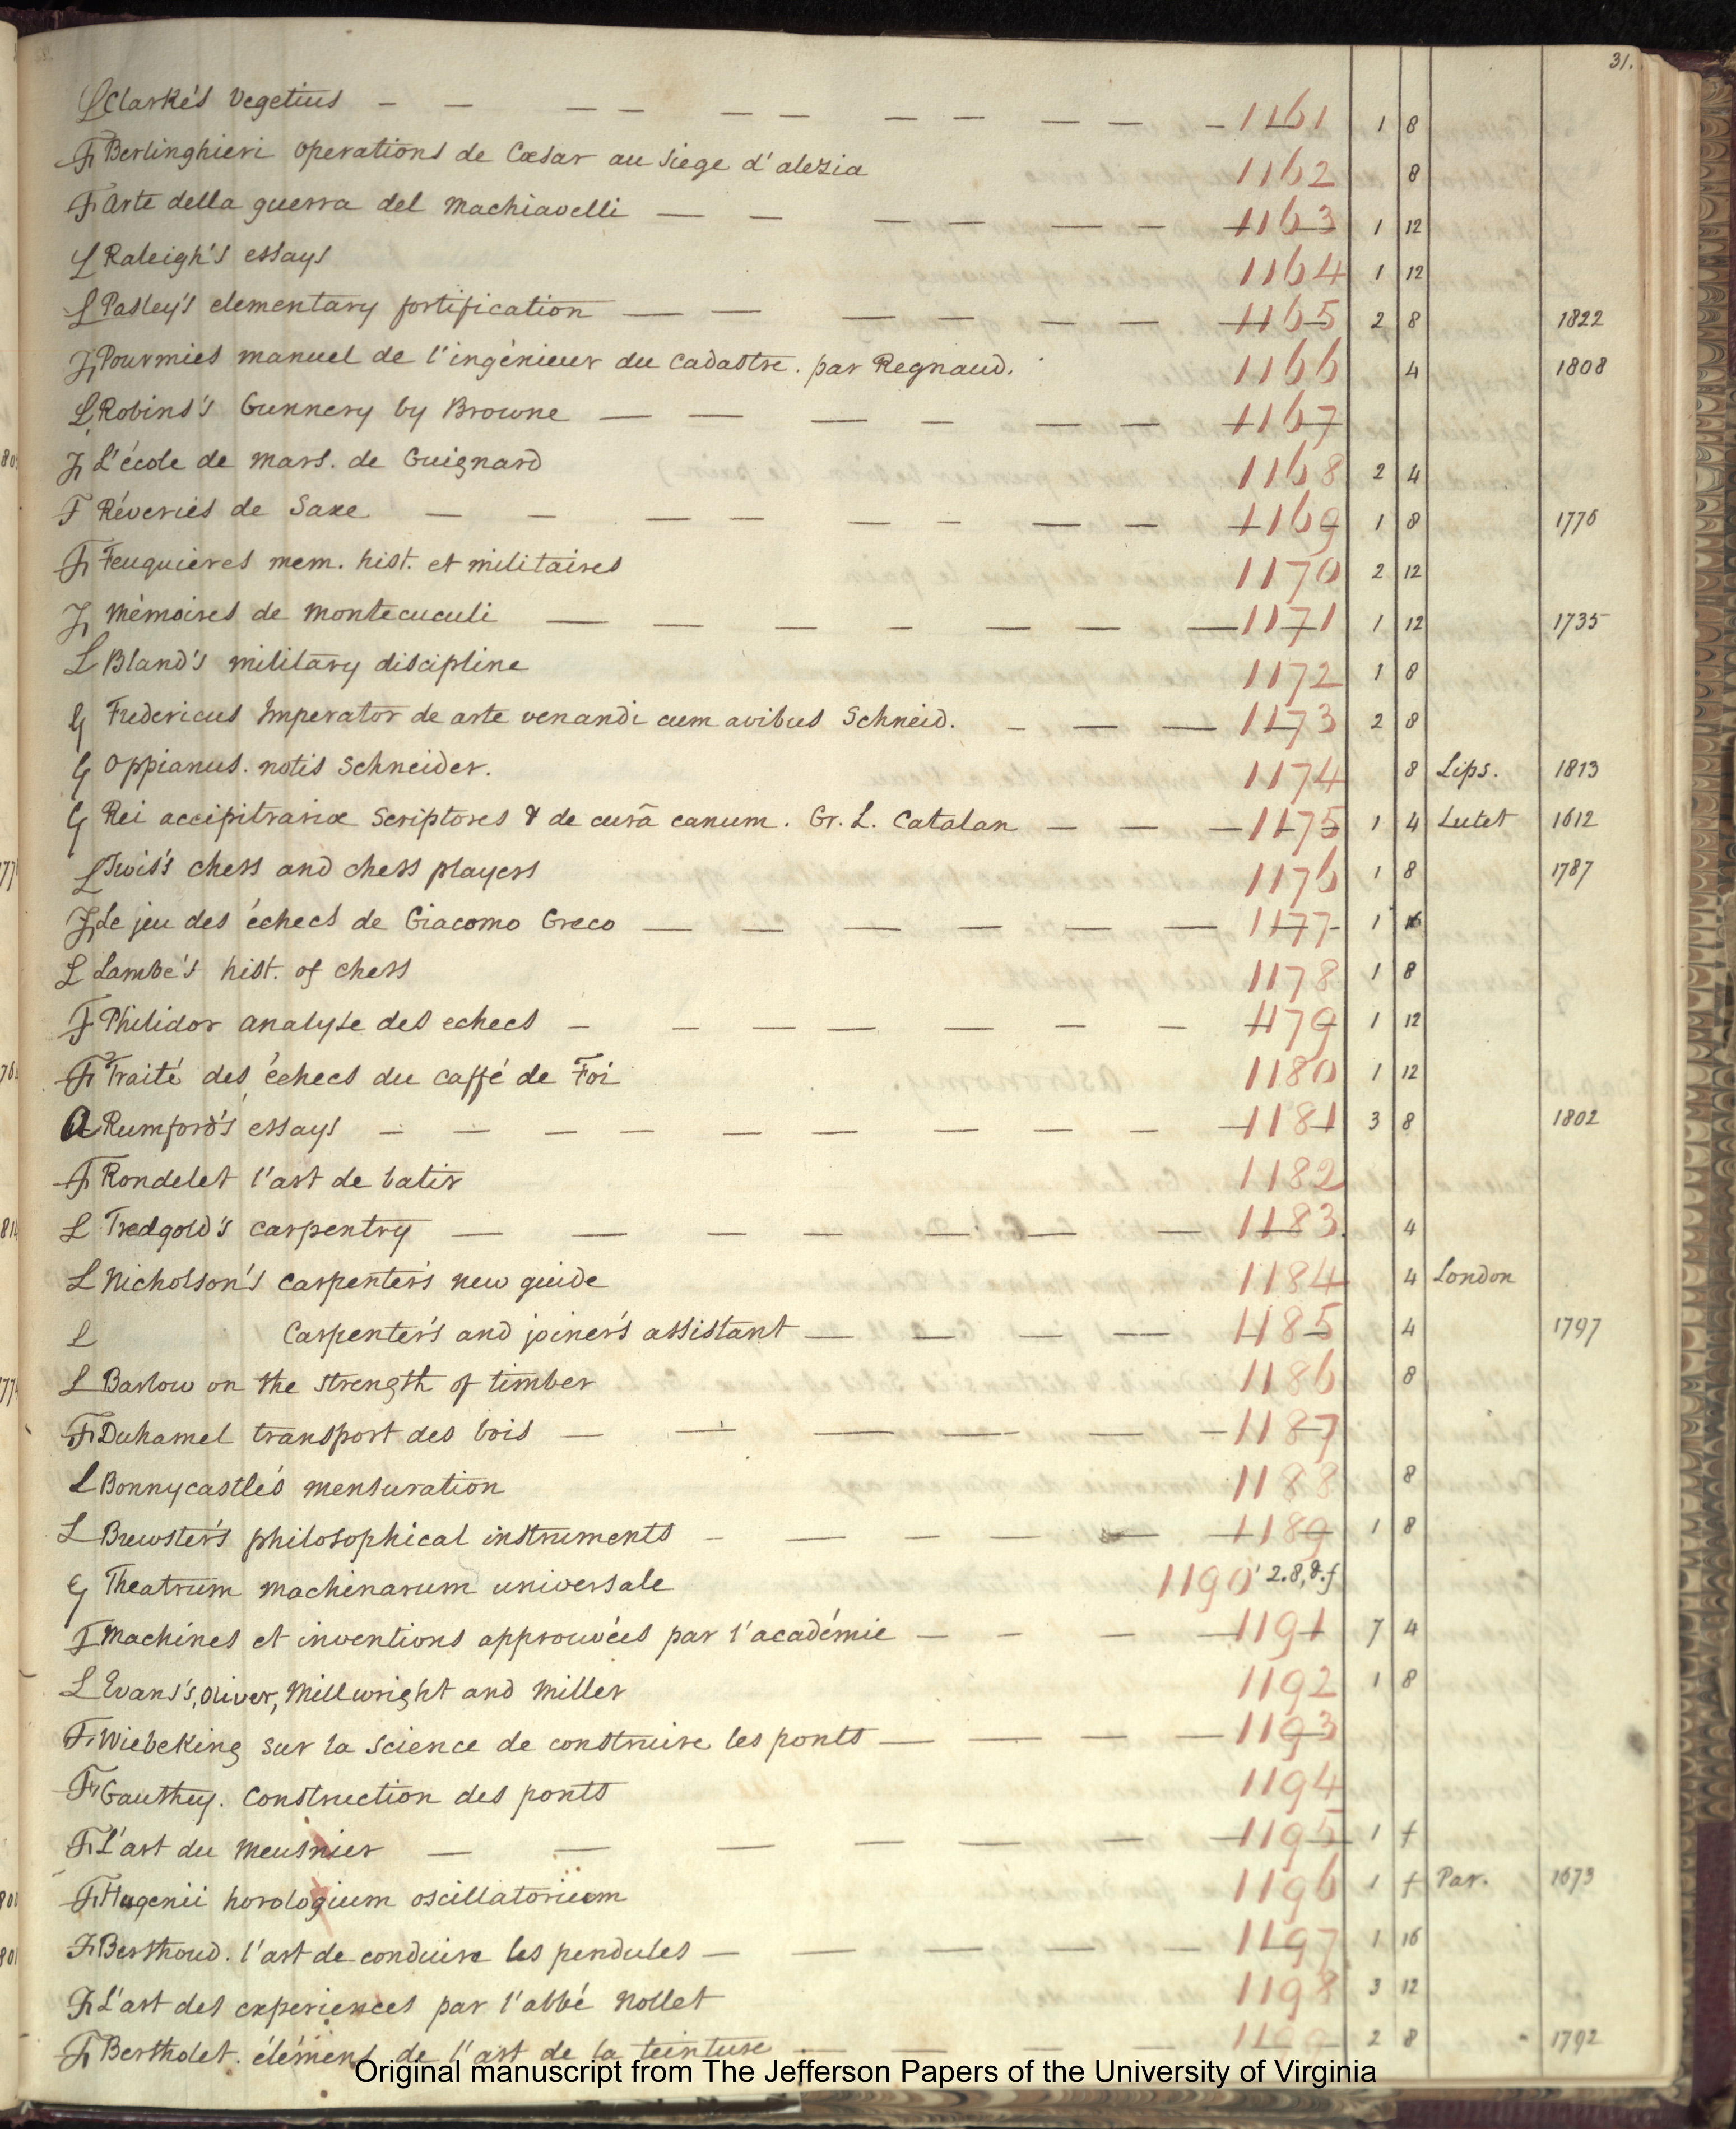 31.
L Clarke's Vegetius — — — — — — — — — — 1161 1 8
F Berlinghieri operations de Cæsar au siege d'alezia 1162 8
F Arte della guerra del Machiavelli — — — — — — 1163 1 12
L Raleigh's essays 1164 1 12
L Pasley's elementary fortification — — — — — — 1165 2 8 1822
F Pourmies manuel de l'ingénieur du Cadastre. par Regnaud. 1166 4 1808
L Robins's Gunnery by Browne — — — — — — 1167
F L'école de Mars. de Guignard 1168 2 4
F Réveries de Saxe — — — — — — — — 1169 1 8 1776
F Feuquieres mem. hist. et militaires 1170 2 12
F Mémoires de Montecuculi — — — — — — — — 1171 1 12 1735
L Bland's military discipline 1172 1 8
G Fredericus Imperator de arte venandi cum avibus Schneid. — — — 1173 2 8
G Oppianus. notis Schneider. 1174 8 Lips. 1813
G Rei accipitrariæ Scriptores & de curâ canum. Gr. L. Catalan — — — 1175 1 4 Lutet 1612
L Twiss's chess and chess players 1176 1 8 1787
F Le jeu des échecs de Giacomo Greco — — — — — — 1177 1 16
L Lambe's hist. of chess 1178 1 8
F Philidor analyse des echecs — — — — — — — 1179 1 12
F Traité des échecs du caffé de Foi 1180 1 12
A Rumford's essays — — — — — — — — — 1181 3 8 1802
F Rondelet l'art de batir 1182
L Tredgold's carpentry — — — — — — — 1183. 4
L Nicholson's carpenter's new guide 1184 4 London
L Carpenter's and joiner's assistant — — — — 1185 4 1797
L Barlow on the strength of timber 1186 8
F Duhamel transport des bois — — — — — — — 1187
L Bonnycastle's mensuration 1188 8
L Brewster's philosophical instruments — — — — — 1189 1 8
G Theatrum machinarum universale 1190 2.8,&.f
F Machines et inventions approuvées par l'académie — — — 1191 7 4
L Evans's, Oliver, Millwright and Miller 1192 1 8
F Wiebeking sur la science de construire les ponts — — — — 1193
F Gauthey. Construction des ponts 1194
F L'art du Meusnier — — — — — — — 1195 1 f
F Hugenii horologium oscillatorium 1196 1 f Par. 1673
F Berthoud. l'art de conduire les pendules — — — — — 1197 1 16
F L'art des experiences par l'abbé Nollet 1198 3 12
F Bertholet. élémens de l'art de la teinture — — — — 1199 2 8 1792
Original manuscript from The Jefferson Papers of the University of Virginia